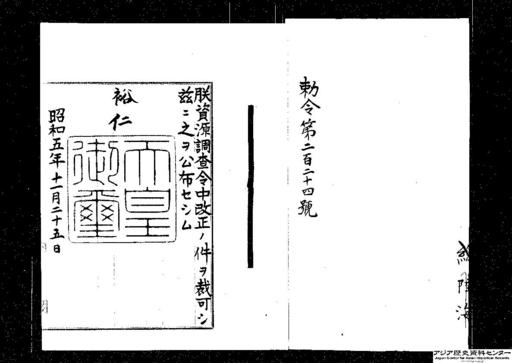 勅令第二百二十四號
陸海
朕資源調査令中改正ノ件ヲ裁可シ
茲ニ之ヲ公布セシム
裕仁
天皇御璽
昭和五年十一月二十五日
アジア歴史資料センター
Japan Center for Asian Historical Records